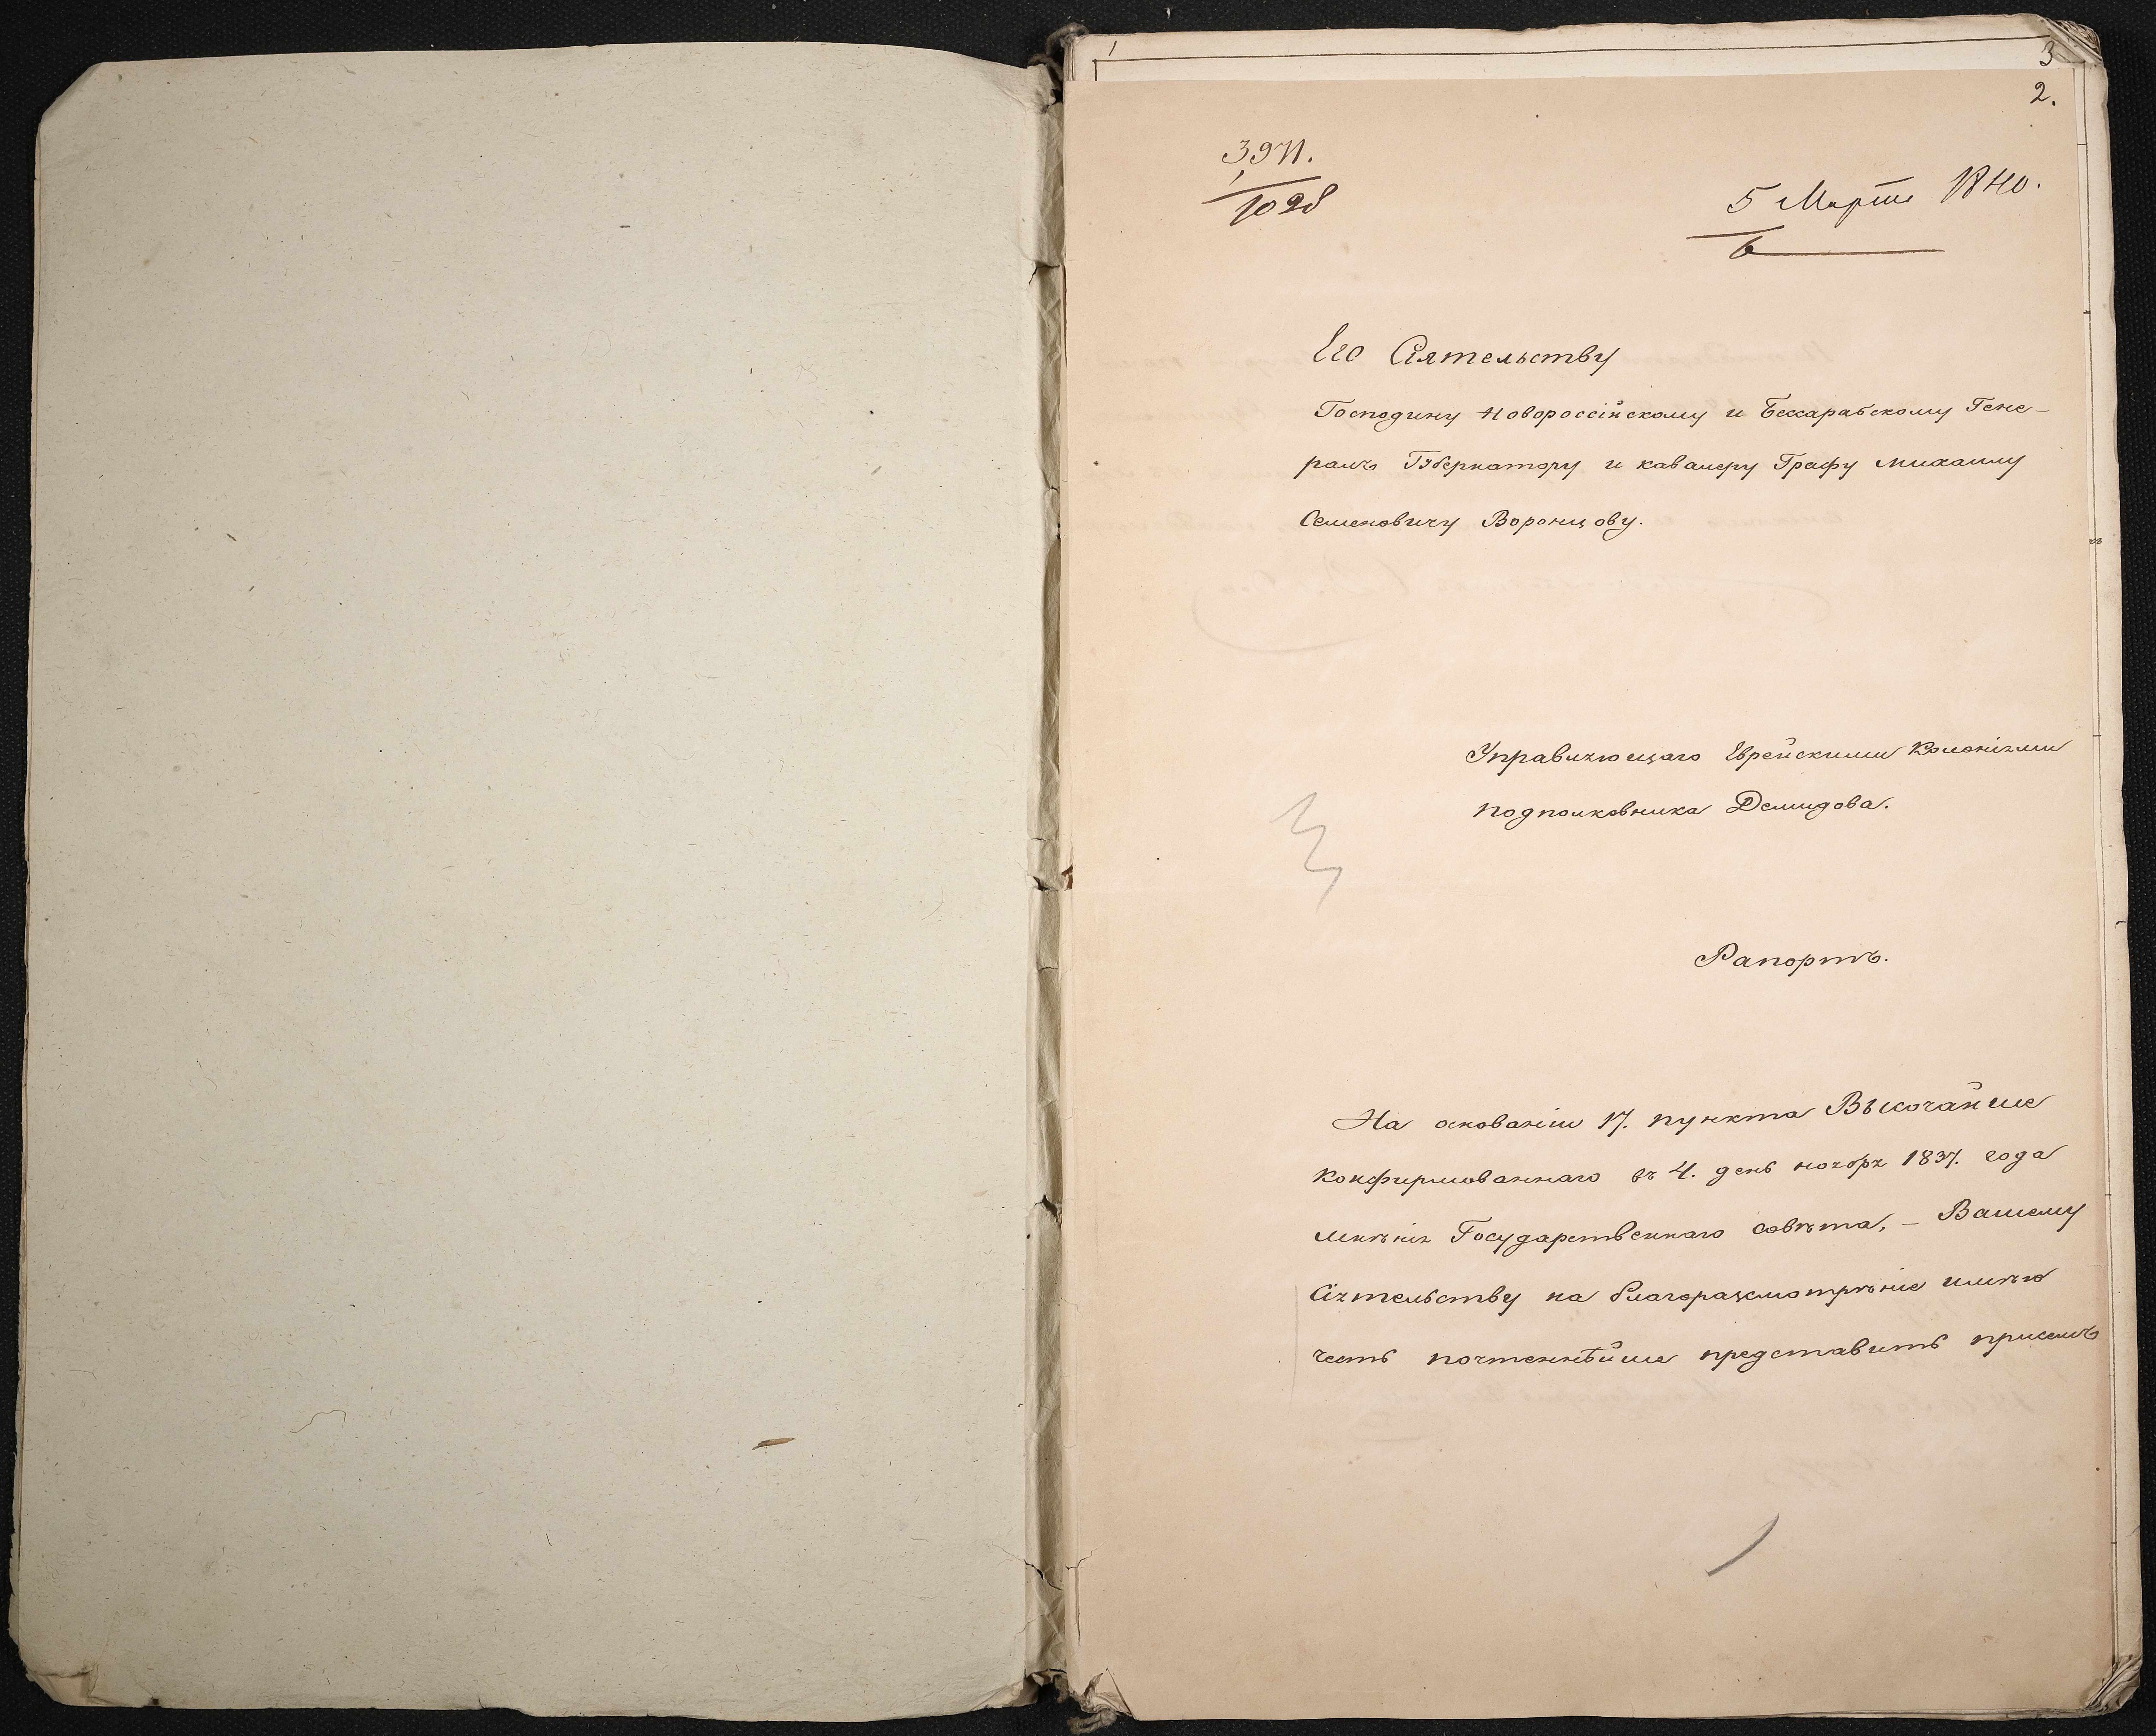 3
2.
3971.
1028
5 Марта 1840.
6
Его Сіятельству
Господину Новороссійскому и Бессарабскому Гене-
ралъ Губернатору и кавалеру Графу Михаилу
Семеновичу Воронцову.
Управляющаго Еврейскими Колоніями
подполковника Демидова.
Рапортъ.
На основаніи 17. пункта Высочайше
конфирмованнаго въ 4. день ноября 1837. года
мнѣнія Государственнаго совѣта, – Вашему
Сіятельству на благоразсмотрѣніе имѣю
честь почтеннѣйше представить присемъ